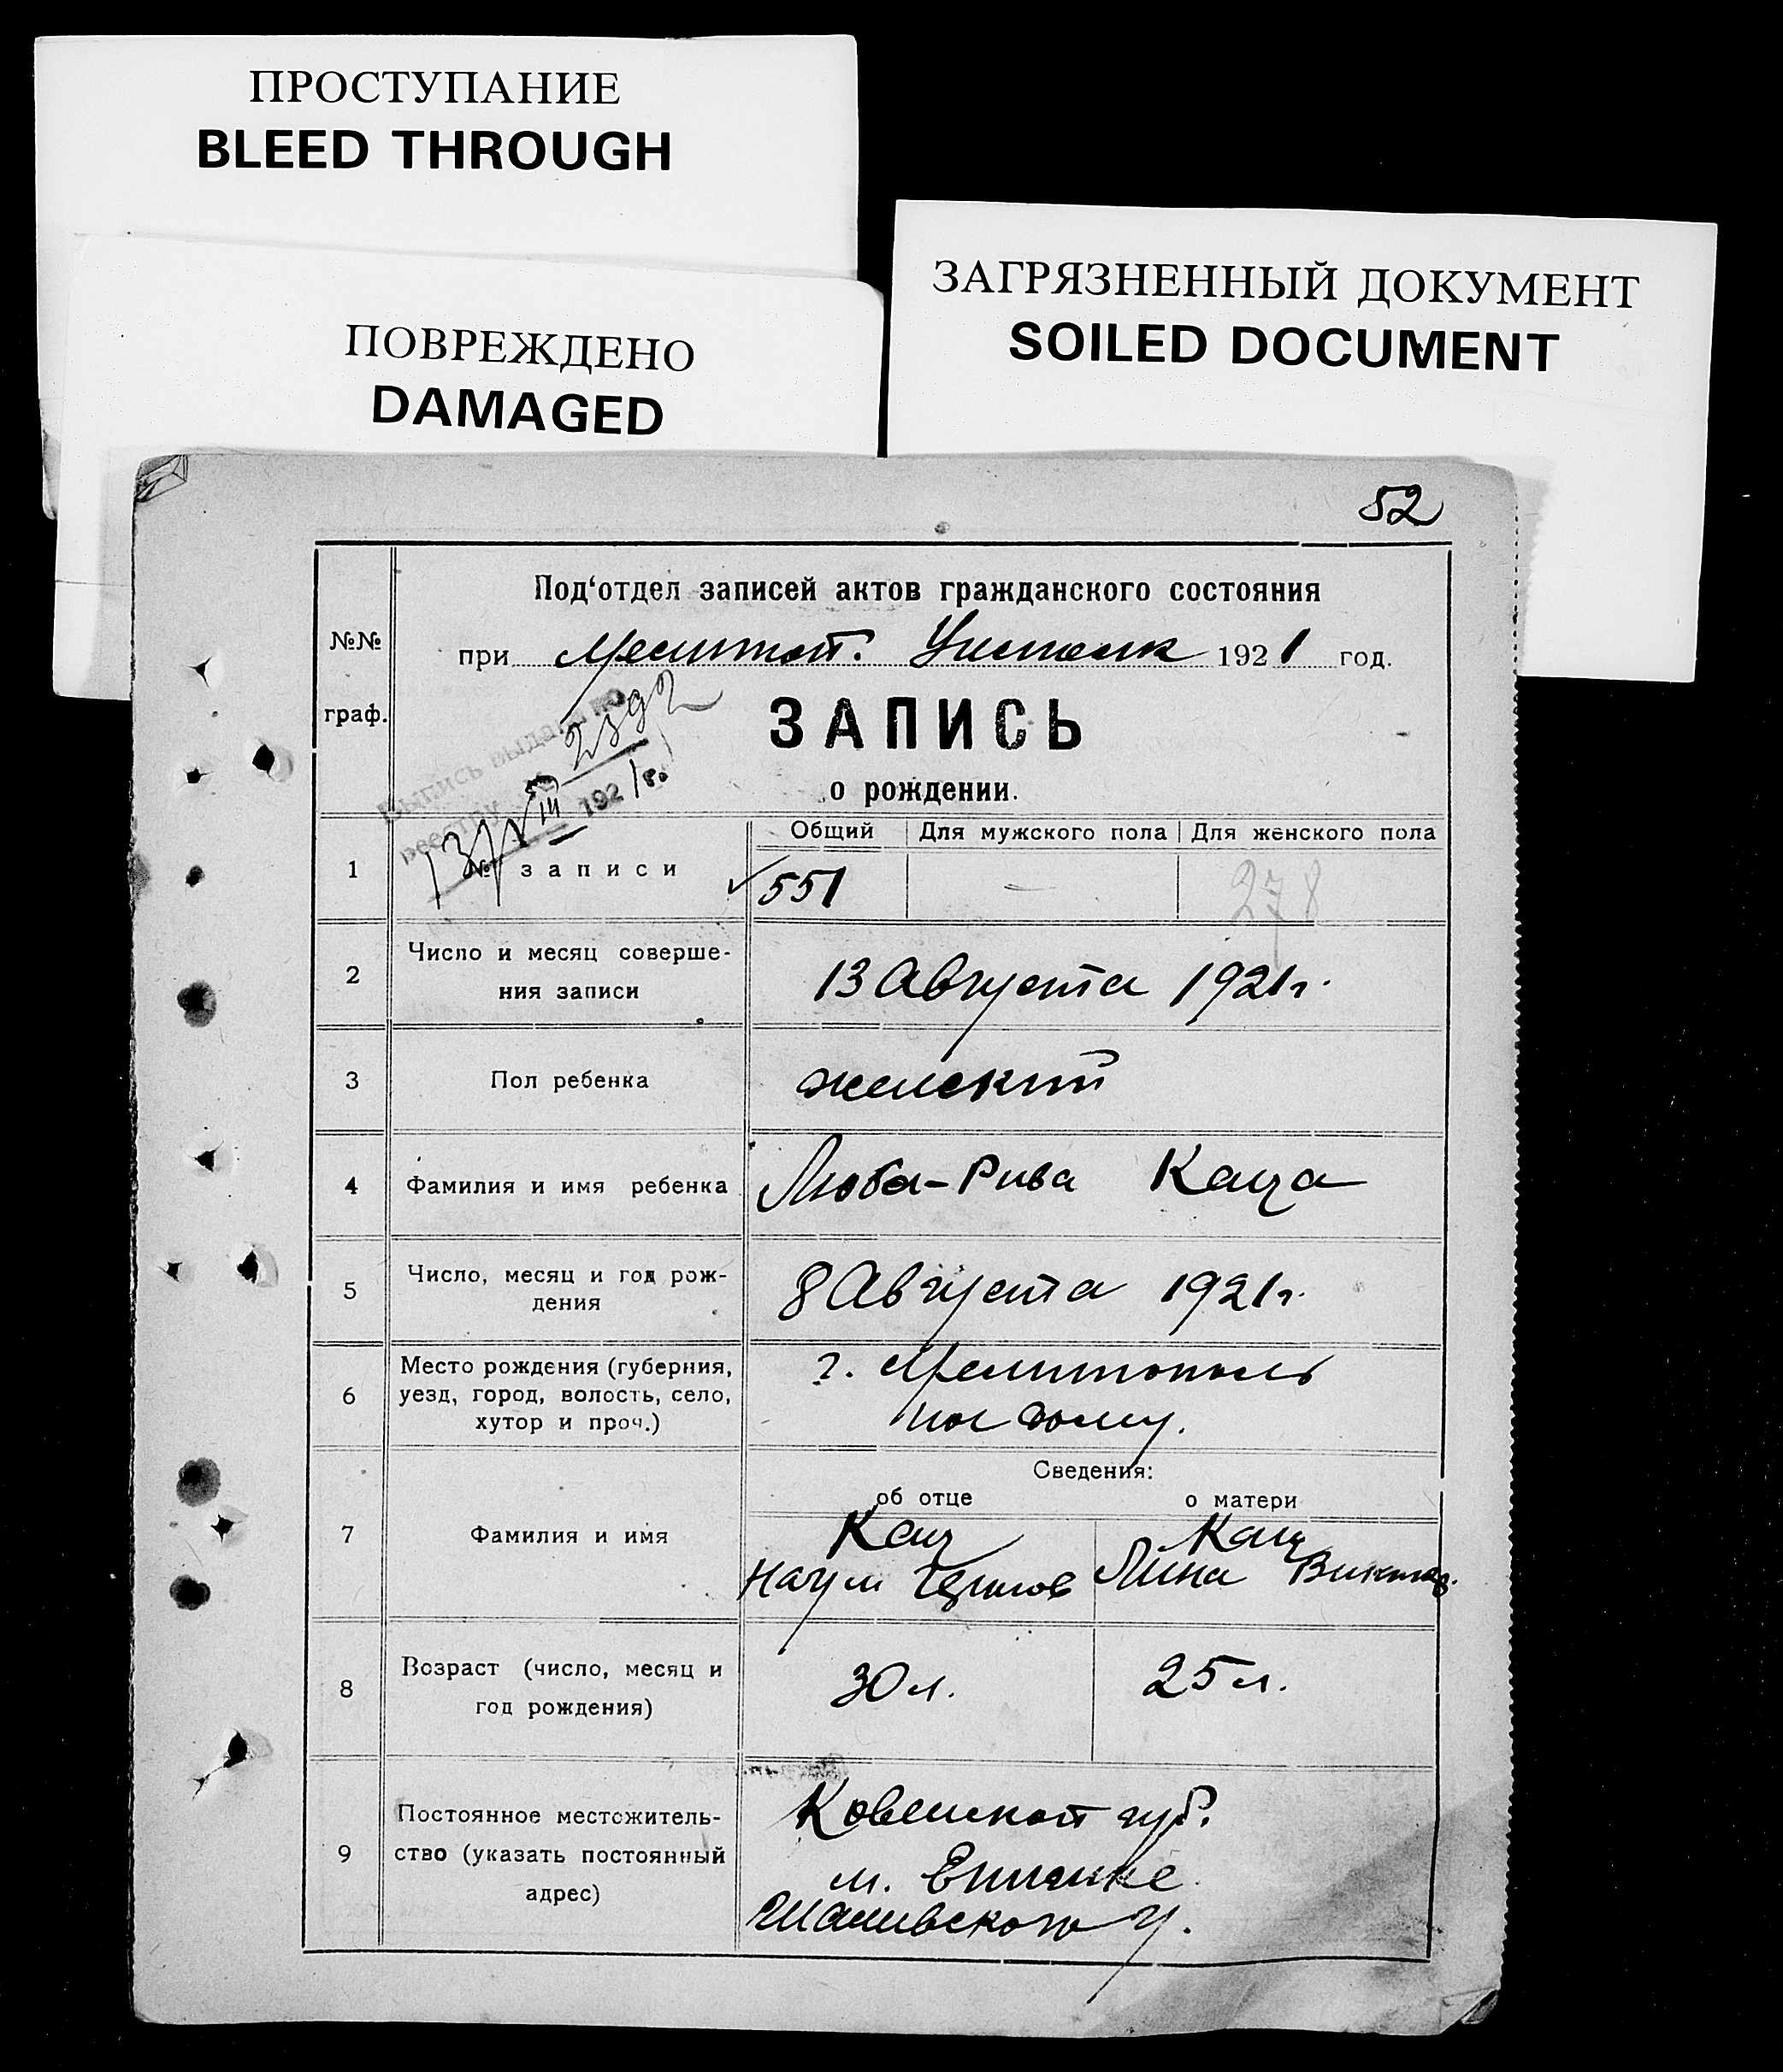 ПРОСТУПАНИЕ
BLEED THROUGH
ПОВРЕЖДЕНО
DAMAGED
ЗАГРЯЗНЕННЫЙ ДОКУМЕНТ
SOILED DOCUMENT
52
Под‘отдел записей актов гражданского состояния
№№ граф.
при Мелитоп. 1921 год.
ЗАПИСЬ
о рождении.
Выпись выдана по
реестру № 2392
13/VIII 1921г.
Общий Для мужского пола Для женского пола
1 № записи 551 — 278
2 Число и месяц соверше-
ния записи
13 Августа 1921 г.
3 Пол ребенка женский
4 Фамилия и имя ребенка Люба-Рива Каца
5 Число, месяц и год рож-
дения
8 Августа 1921 г.
6 Место рождения (губерния,
уезд, город, волость, село,
хутор и проч.)
г. Мелитополь
на дому.
Сведения:
об отце о матери
7 Фамилия и имя
Кац Кац
Наум Лина
8 Возраст (число, месяц и
год рождения)
30 л. 25 л.
9 Постоянное местожитель-
ство (указать постоянный
адрес)
Ковенской губ.
м.
Шавивского у.